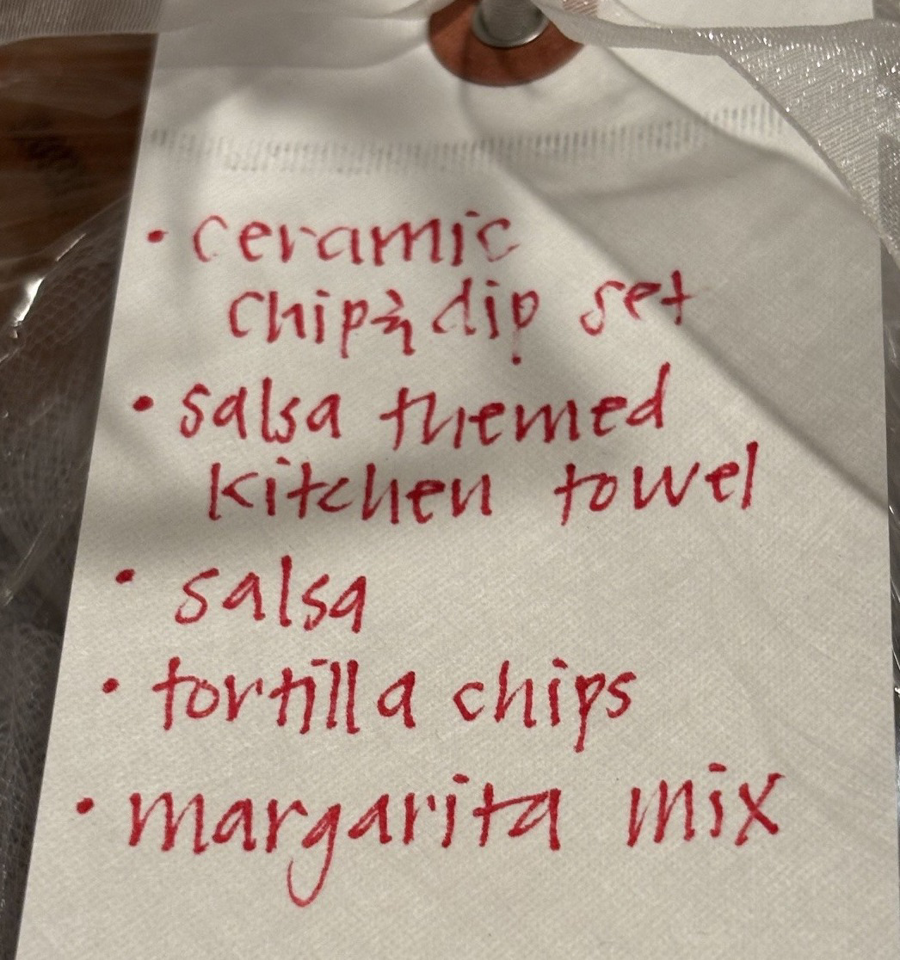 • ceramic
chip & dip set
• salsa themed
kitchen towel
• salsa
• tortilla chips
• margarita mix